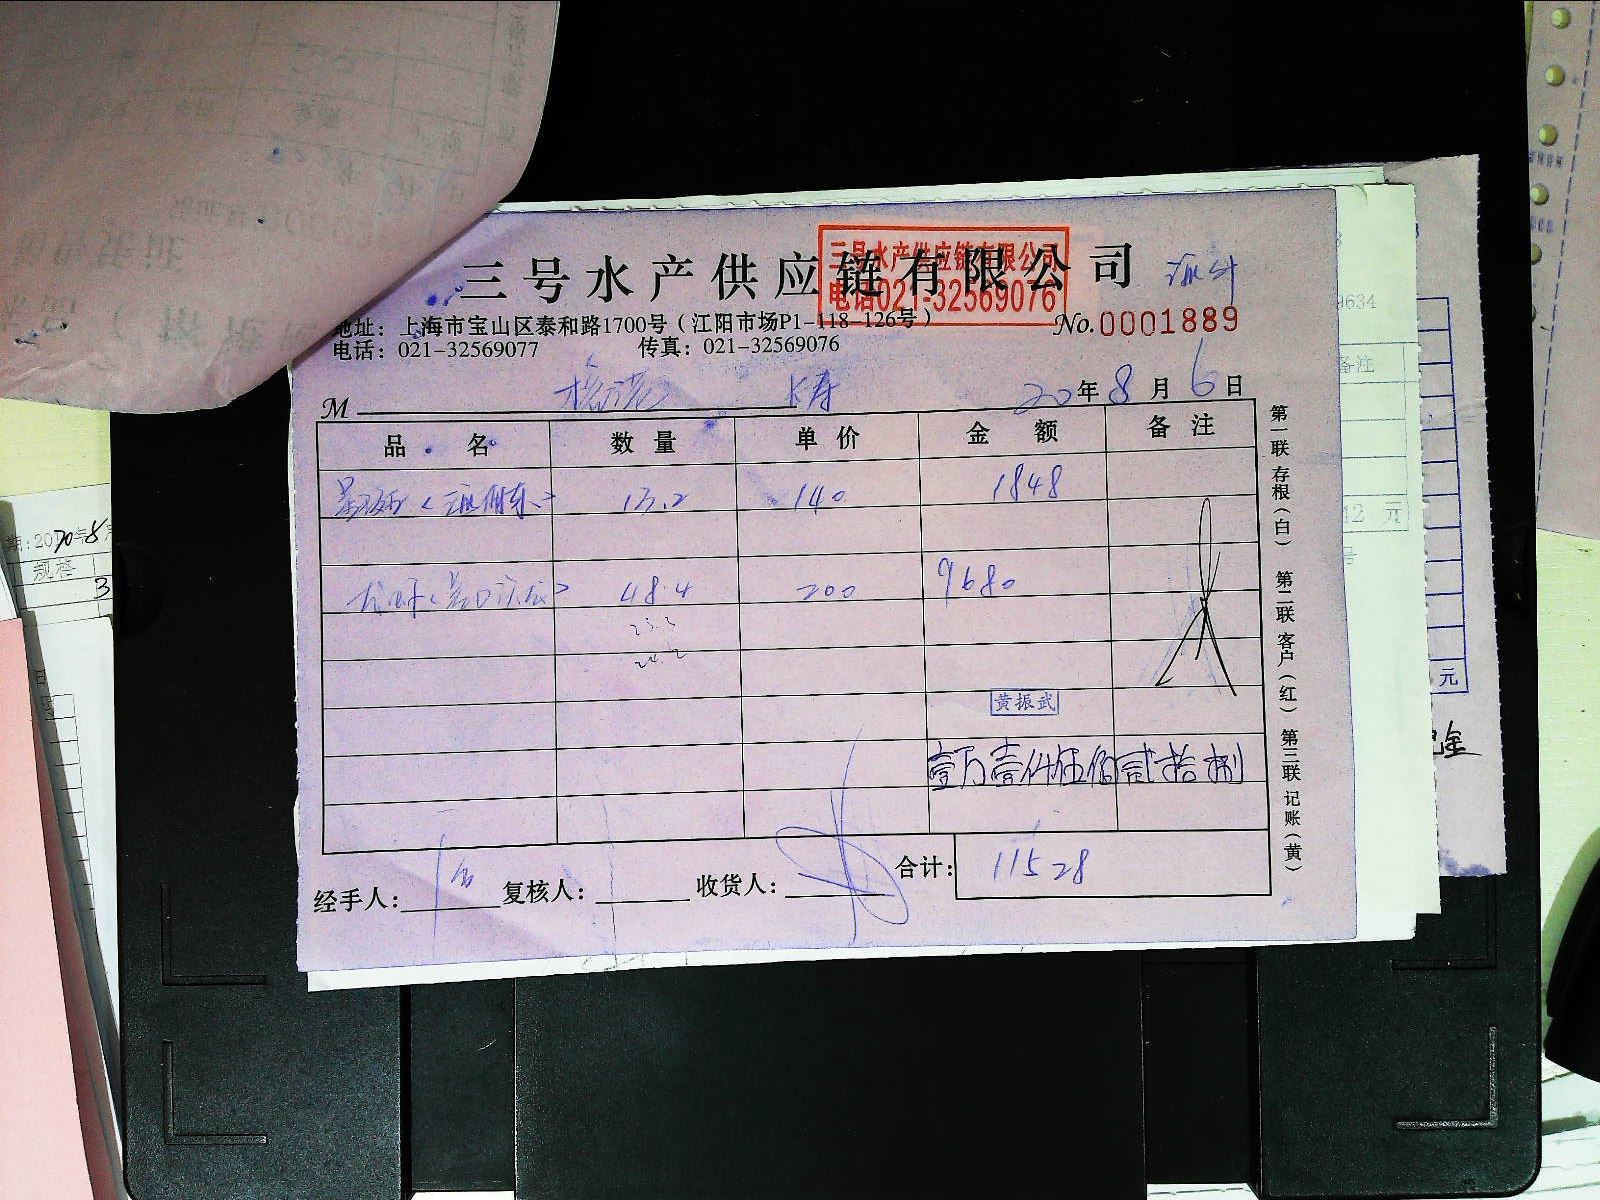 三号水产供应链有限公司
三号水产供应链有限公司
电话021-32569076
地址：上海市宝山区泰和路1700号（江阳市场P1-118-126号）
No.0001889
电话：021-32569077 传真：021-32569076
M 20年8月6日
品名 数量 单价 金额 备注
13.2 140 1848
48.4 200 9680
23.3
24.2
黄振武
壹万壹仟伍佰贰拾捌
合计：11528
经手人： 复核人： 收货人：
第一联 存根（白） 第二联 客户（红） 第三联 记账（黄）
期：2020年8
规格
3
9634
备注
12 元
号
元